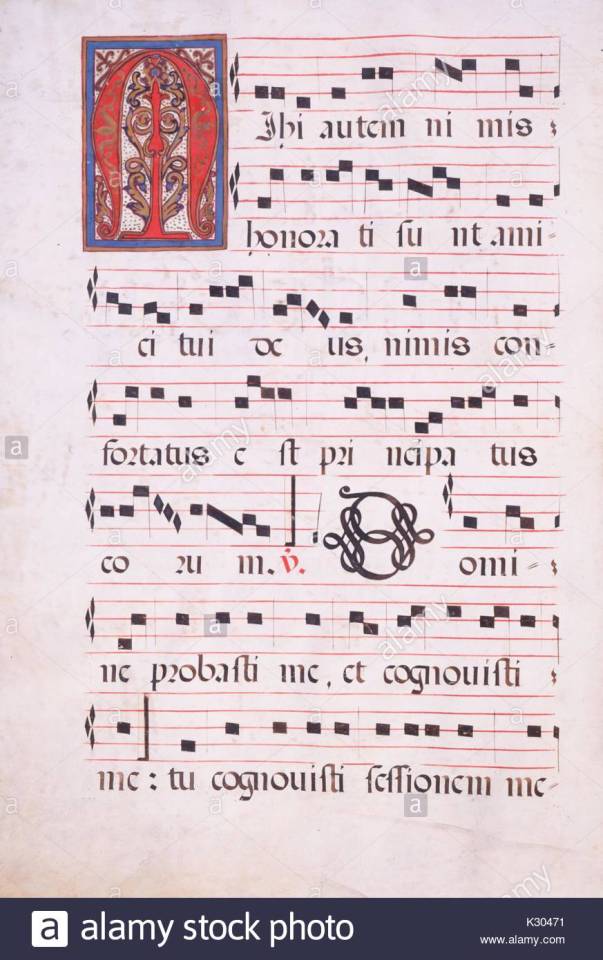 Mihi autem ni mis
honora ti su nt ami-
ci tui de us, nimis con-
fortatus e st pri ncipa tus
co ru m. V. Domi-
ne probasti me, et cognouisti
me : tu cognouisti sessionem me-
alamy stock photo
K30471
www.alamy.com